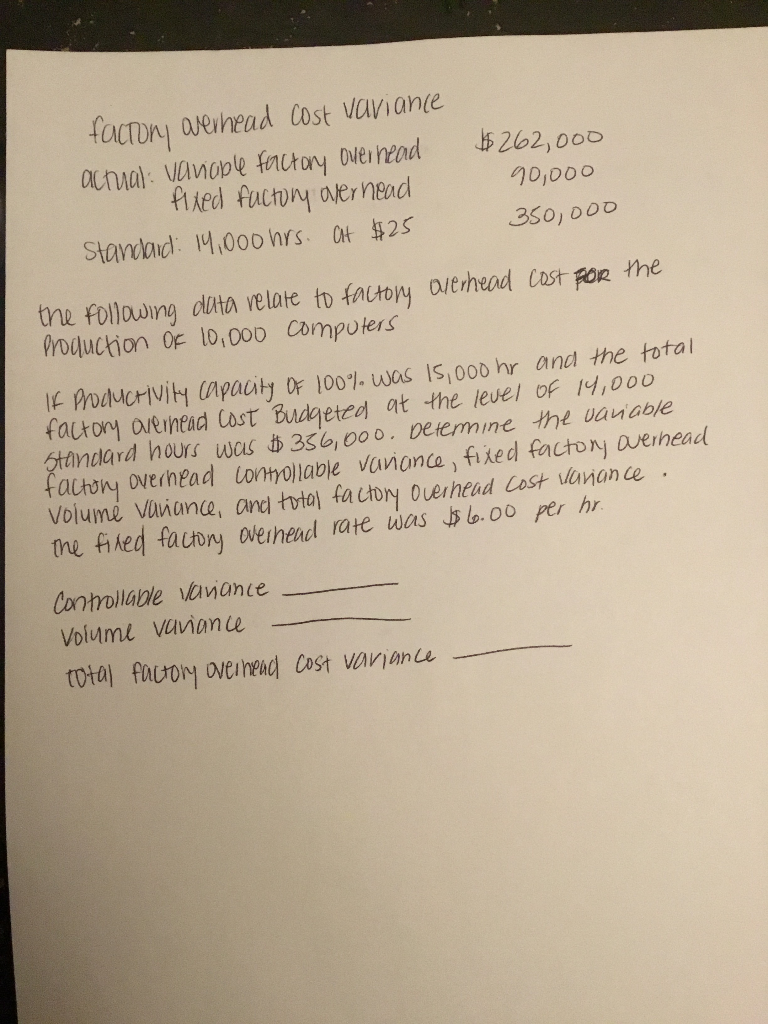 factory overhead cost variance
actual: variable factory overhead $262,000
fixed factory overhead 90,000
Standard: 14,000 hrs. at $25 350,000
the following data relate to factory overhead cost for the
Production of 10,000 computers
If Productivity capacity of 100% was 15,000 hr and the total
factory overhead cost Budgeted at the level of 14,000
standard hours was $356,000. Determine the variable
factory overhead controllable variance, fixed factory overhead
volume variance, and total factory overhead cost variance.
The fixed factory overhead rate was $6.00 per hr.
Controllable variance
Volume variance
total factory overhead cost variance